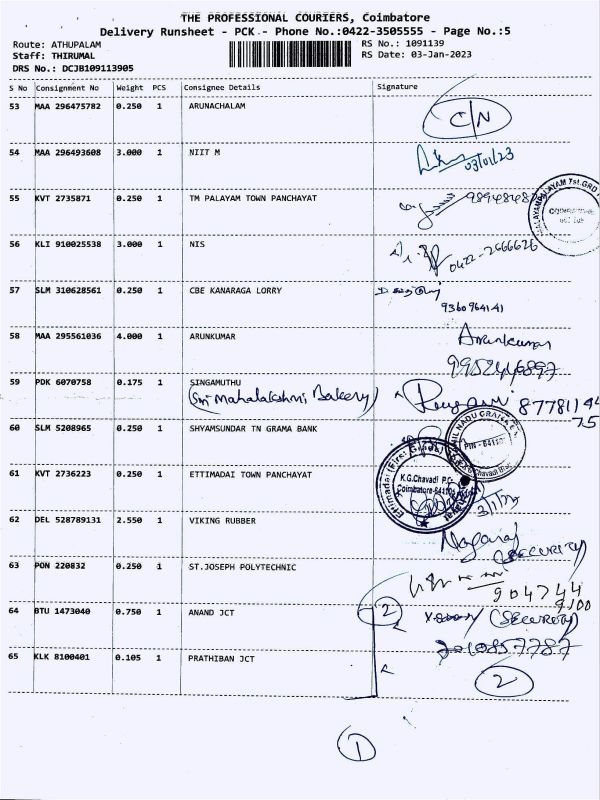 THE PROFESSIONAL COURIERS, Coimbatore
Delivery Runsheet - PCK - Phone No.:0422-3505555 - Page No.:5
Route: ATHUPALAM
Staff: THIRUMAL
DRS No.: DCJB109113905
RS No.: 1091139
RS Date: 03-Jan-2023
S No Consignment No Weight PCS Consignee Details Signature
53 MAA 296475782 0.250 1 ARUNACHALAM C/N
54 MAA 296493608 3.000 1 NIIT M 03/01/23
55 KVT 2735871 0.250 1 TM PALAYAM TOWN PANCHAYAT
56 KLI 910025538 3.000 1 NIS 0422-2666626
57 SLM 310628561 0.250 1 CBE KANARAGA LORRY
9360964141
58 MAA 295561036 4.000 1 ARUNKUMAR Arunkumar
9952446897
59 PDK 6070758 0.175 1 SINGAMUTHU
(Sri Mahalakshmi Bakery) 87781144
75
60 SLM 5208965 0.250 1 SHYAMSUNDAR TN GRAMA BANK
61 KVT 2736223 0.250 1 ETTIMADAI TOWN PANCHAYAT
K.G.Chavadi P.O
Coimbatore-641105
62 DEL 528789131 2.550 1 VIKING RUBBER Nagaraj
(SECURITY)
63 PON 220832 0.250 1 ST.JOSEPH POLYTECHNIC
904744
9100
64 BTU 1473040 0.750 1 ANAND JCT 2 (SECURITY)
65 KLK 8100401 0.105 1 PRATHIBAN JCT
2
1